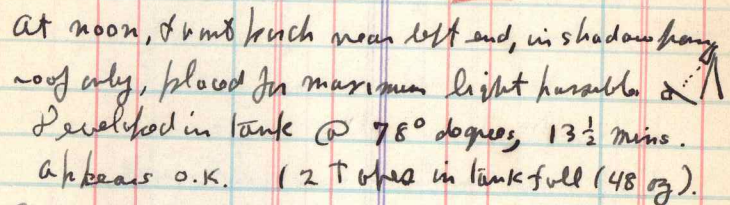 At noon, front porch near left end, in shadow from
roof only, placed for maximum light possible
Developed in tank @ 78° degrees, 13 ½ mins.
Appears O.K. (2 T in tank full (48 oz).